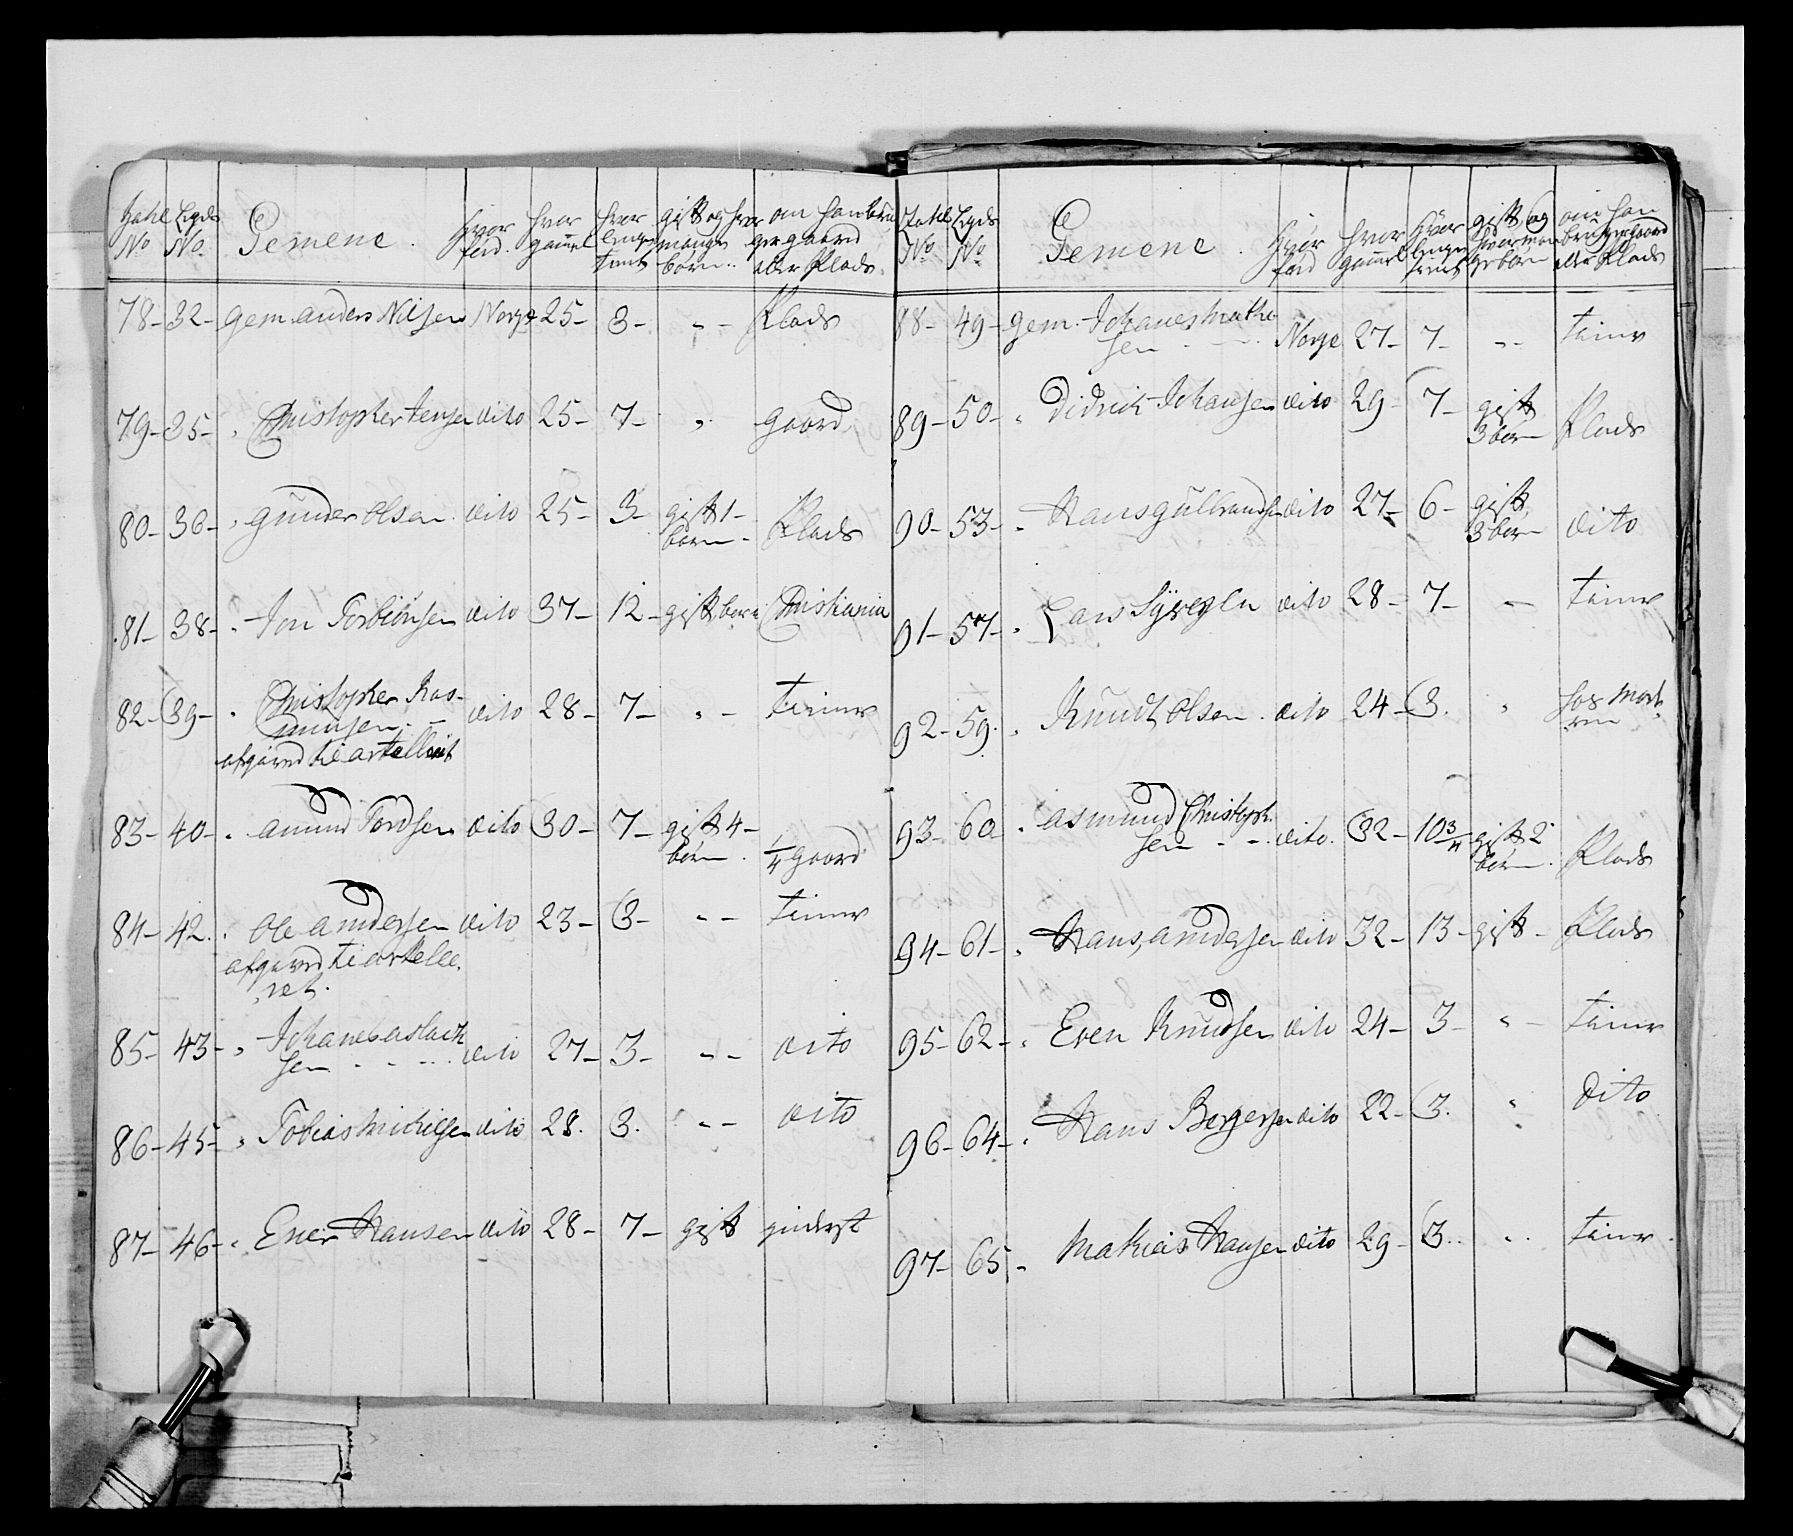 Tahl No | Legds No. | Gemene. | hvor fød. | hvor gamel | hvor lenge tient | gift og hvor mange børn. | om han bru ger gaard eller Plads.
78- | 32- | gem. anders Nilsen | Norge | 25- | 3- | " - | Plads
79- | 35- | " Christopher Jensen | dito | 25- | 7- | " | gaard
80- | 36- | " gunder olsen | dito | 25- | 3- | gift 1- børn - | Plads
81- | 38- | " Jon Torbiönsen | dito | 37- | 12- | gift børn | Christiania
82- | 39- | " Christopher Ras-
musen. -
afgaaed til artelleriet | dito | 28- | 7- | " - | tiener
83- | 40- | " amund Tordsen | dito | 30- | 7- | gift 4- børn. | 1/4 gaard
84- | 42. | " ole andersen
afgaaed til artelle
riet. | dito | 23- | 3- | " - | tiener
85- | 43- | " Johanes aslach
sen - - - | dito | 27- | 3- | " - | dito
86- | 45- | " Tobias Mickelsen | dito | 28. | 3. | " - | dito
87- | 46- | " Ener Hansen | dito | 28- | 7- | gift | inderst
Tahl No | Legds No | Gemene. | hvor fød | hvor gamel | hvor lenge tient | gift og hvor man ge børn | om han bruger gaard eller Plads
88- | 49- | gem. Johanes Mathi
sen - - | Norge | 27- | 7- | " - | tiener
89- | 50- | " Didrich Johansen | dito | 29- | 7- | gift 3 børn | Plads
90- | 53- | " Hans gulbrandsen | dito | 27- | 6- | gift 3 børn | dito
91- | 57- | " Lars | dito | 28- | 7- | - | tiener
92- | 59. | " Knudt olsen. | dito | 24- | 3. | " | hos
93- | 60 | " asmund Christoph.
sen - - | dito. | 32- | 10 3/4 | gift 2 børn. | Plads
94- | 61- | " Hans andersen | dito | 32- | 13- | gift - | Plads
95- | 62- | " Even Knudsen | dito | 24- | 3- | " - | tiener
96- | 64- | " Hans Bergersen | dito | 22- | 3. | " | dito
97- | 65 | - Mathias Hansen | dito | 29- | 3. | " . | tiener